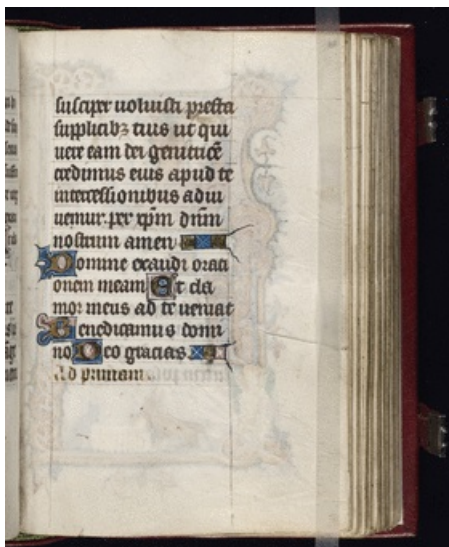 suscipe uoluisti presta
supplicibꝫ tuis ut qui
uere eam dei genitricē
credimus eius apud te
intercessionibus adiu
uemur. per xp̄m dn̄m
nostrum amen
Domine exaudi orati
onem meam Et cla
mor meus ad te ueniat
Benedicamus domi
no Deo gracias
Ad primam.